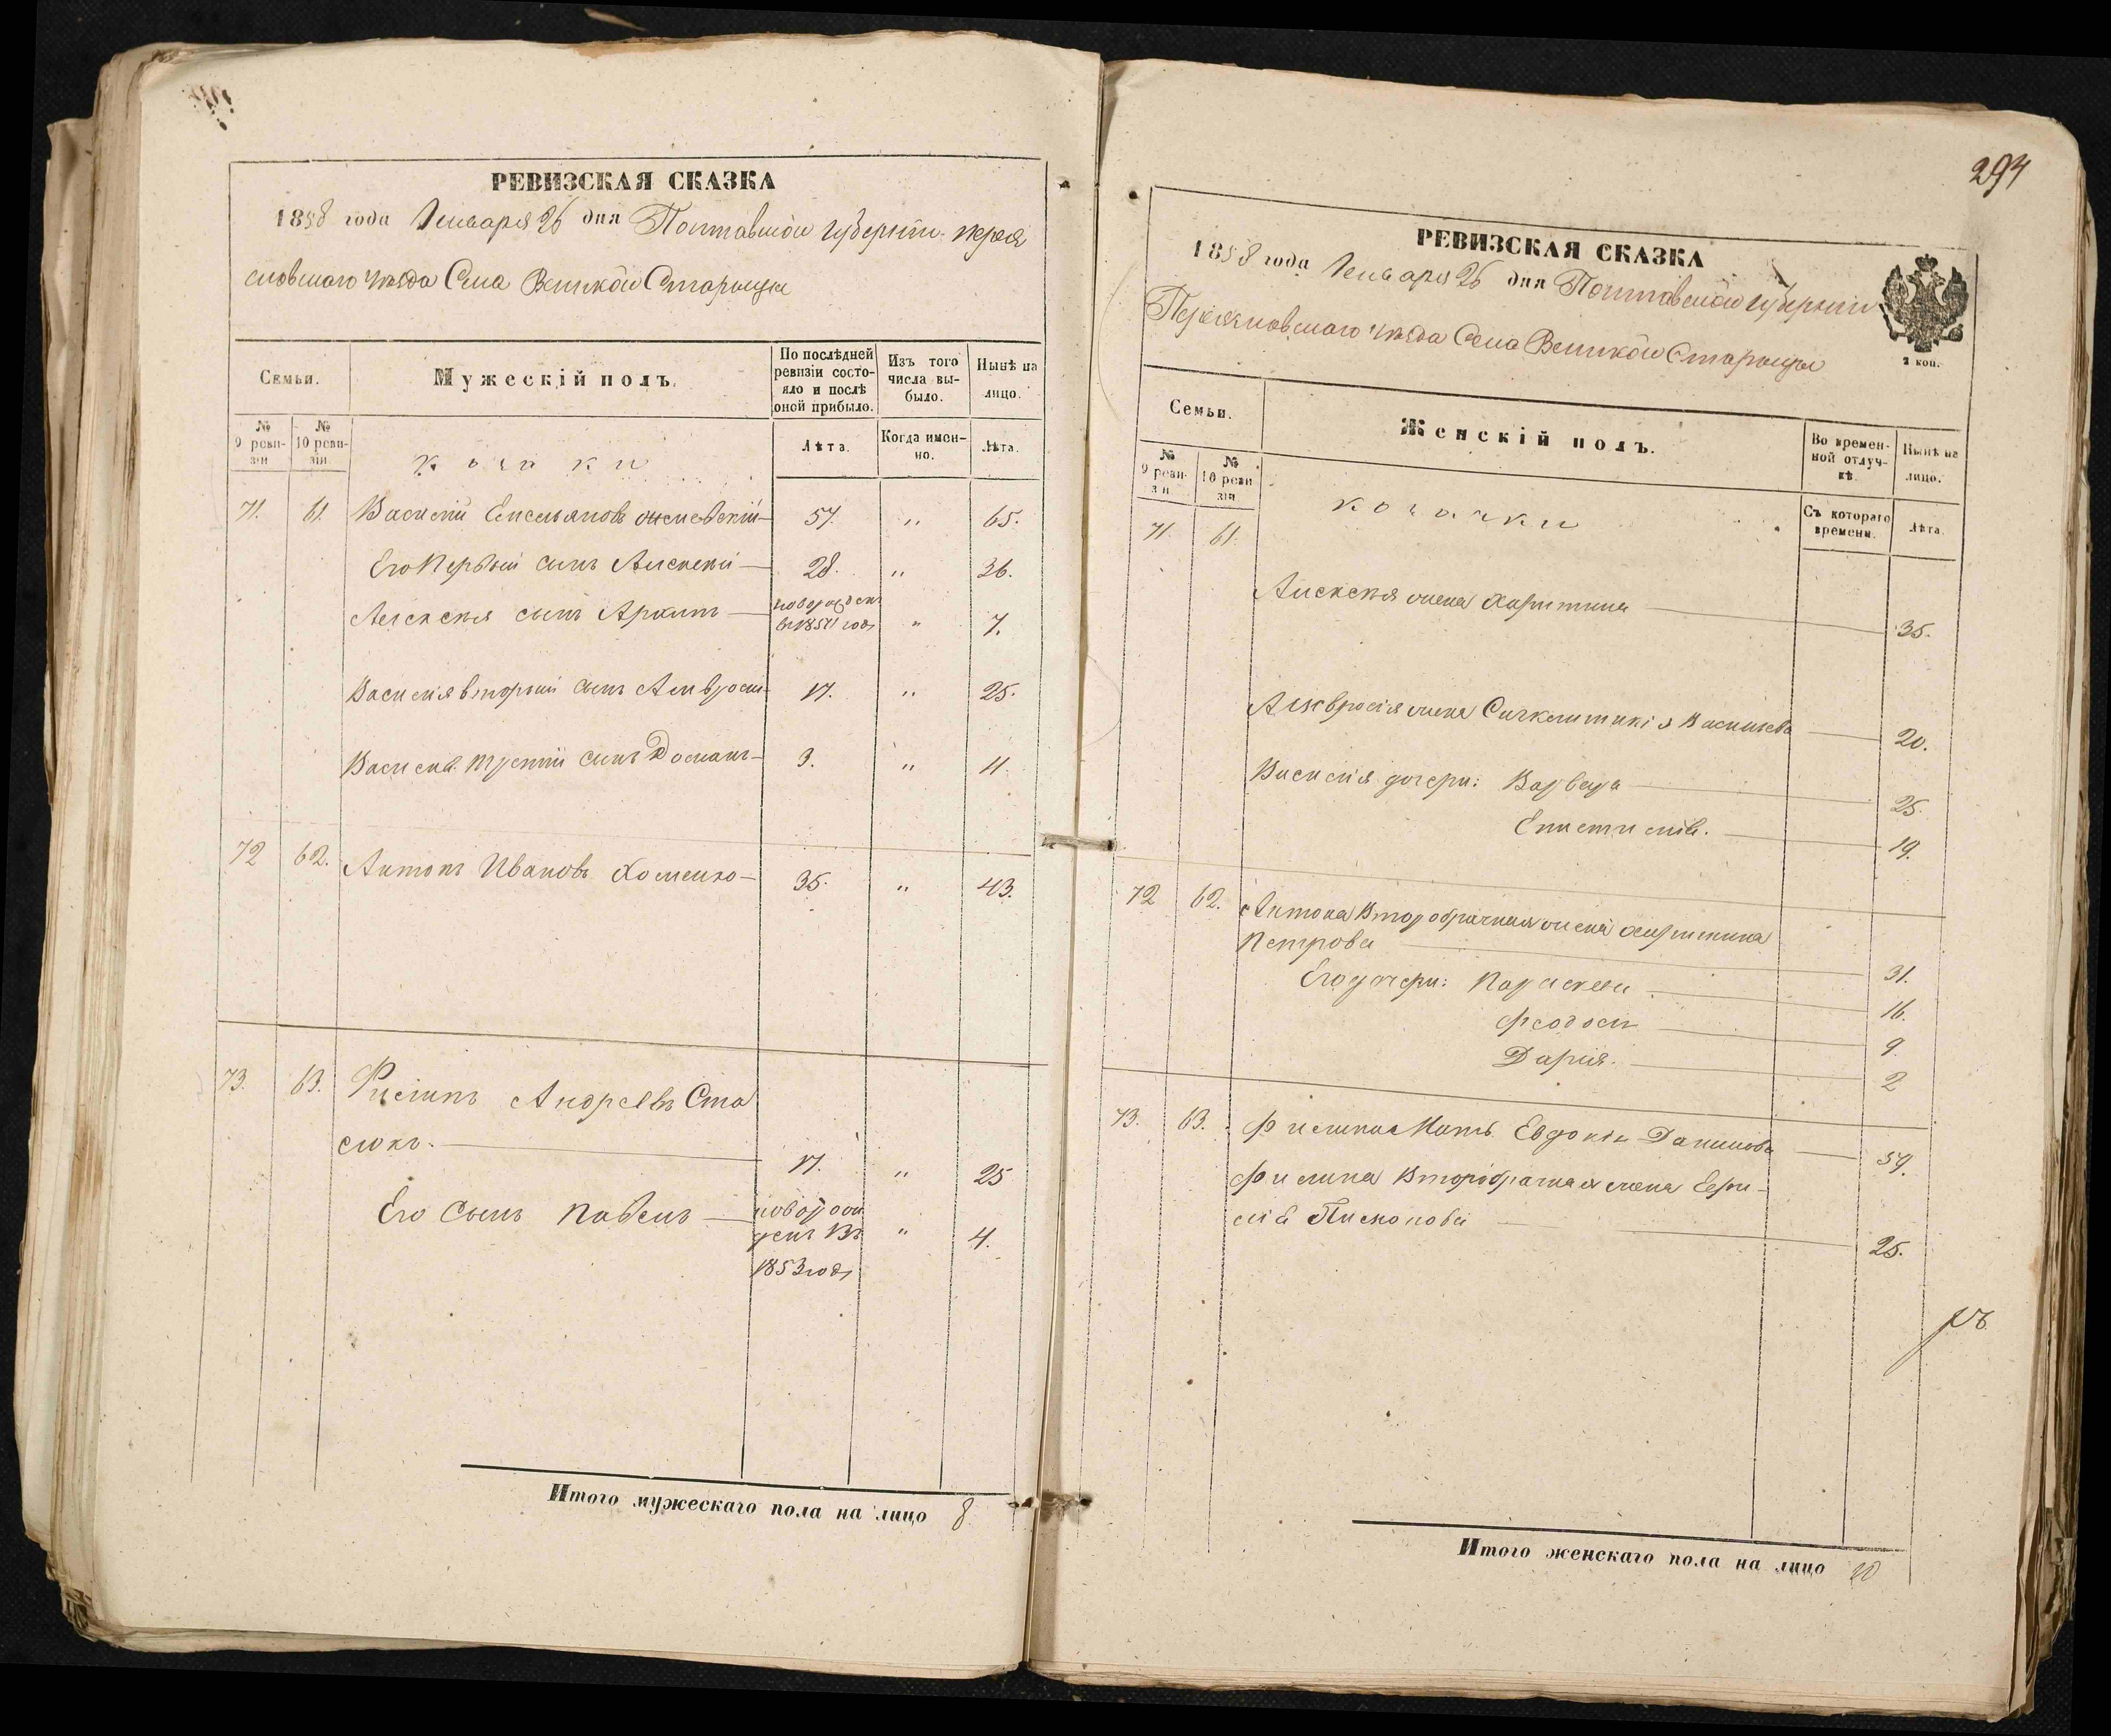 РЕВИЗСКАЯ СКАЗКА
1858 года Января 26 дня Полтавской губернии Перея
словскаго уезда Села Великой Старицы
Семьи.
Мужескій полъ.
По послѣдней ревизіи состояло и послѣ оной прибыло.
Изъ того числа выбыло.
Нынѣ на лицо.
№ 9 ревизіи
№ 10 ревизіи.
козаки
Лѣта.
Когда именно.
Лѣта.
71. 61. Василий Емельяновъ 57. " 65.
Его Первый сынъ Алексей 28. " 36.
Алексея сынъ новорожден
въ 1850 годе " 7.
Василия вторый сынъ Амвросий 17. " 25.
Василия третий сынъ 3. " 11.
72 62. Антонъ Ивановъ Хоменко 35. " 43.
73. 63. Филипъ Андреевъ Ста
сюкъ. 17. " 25
Его Сынъ Павелъ новорож
денъ въ " 4.
1853 годе
Итого мужескаго пола на лицо 8.
294
РЕВИЗСКАЯ СКАЗКА
1858 года Января 26 дня Полтавской губернии
Переясловскаго уезда Села Великой Старицы
2 коп.
Семьи.
Женскій полъ.
Во временной отлучкѣ.
Нынѣ на лицо.
№ 9 ревизіи
№ 10 ревизіи
козачки
Съ котораго времени.
Лѣта.
71. 61.
Алексея жена Харитина 35.
Амвросія жена Васильева 20.
Василія дочери: Варвара 25.
Епистимія. 19.
72 62. Антона Второбрачная жена Харитина
Петрова 31.
Его дочери: Параскева 16.
Феодосия 9.
Дария. 2
73. 63. Филипа Мать Евдокия Данилова 59.
Филипа Второбрачная жена Евфи-
мия 25.
Итого женскаго пола на лицо 10